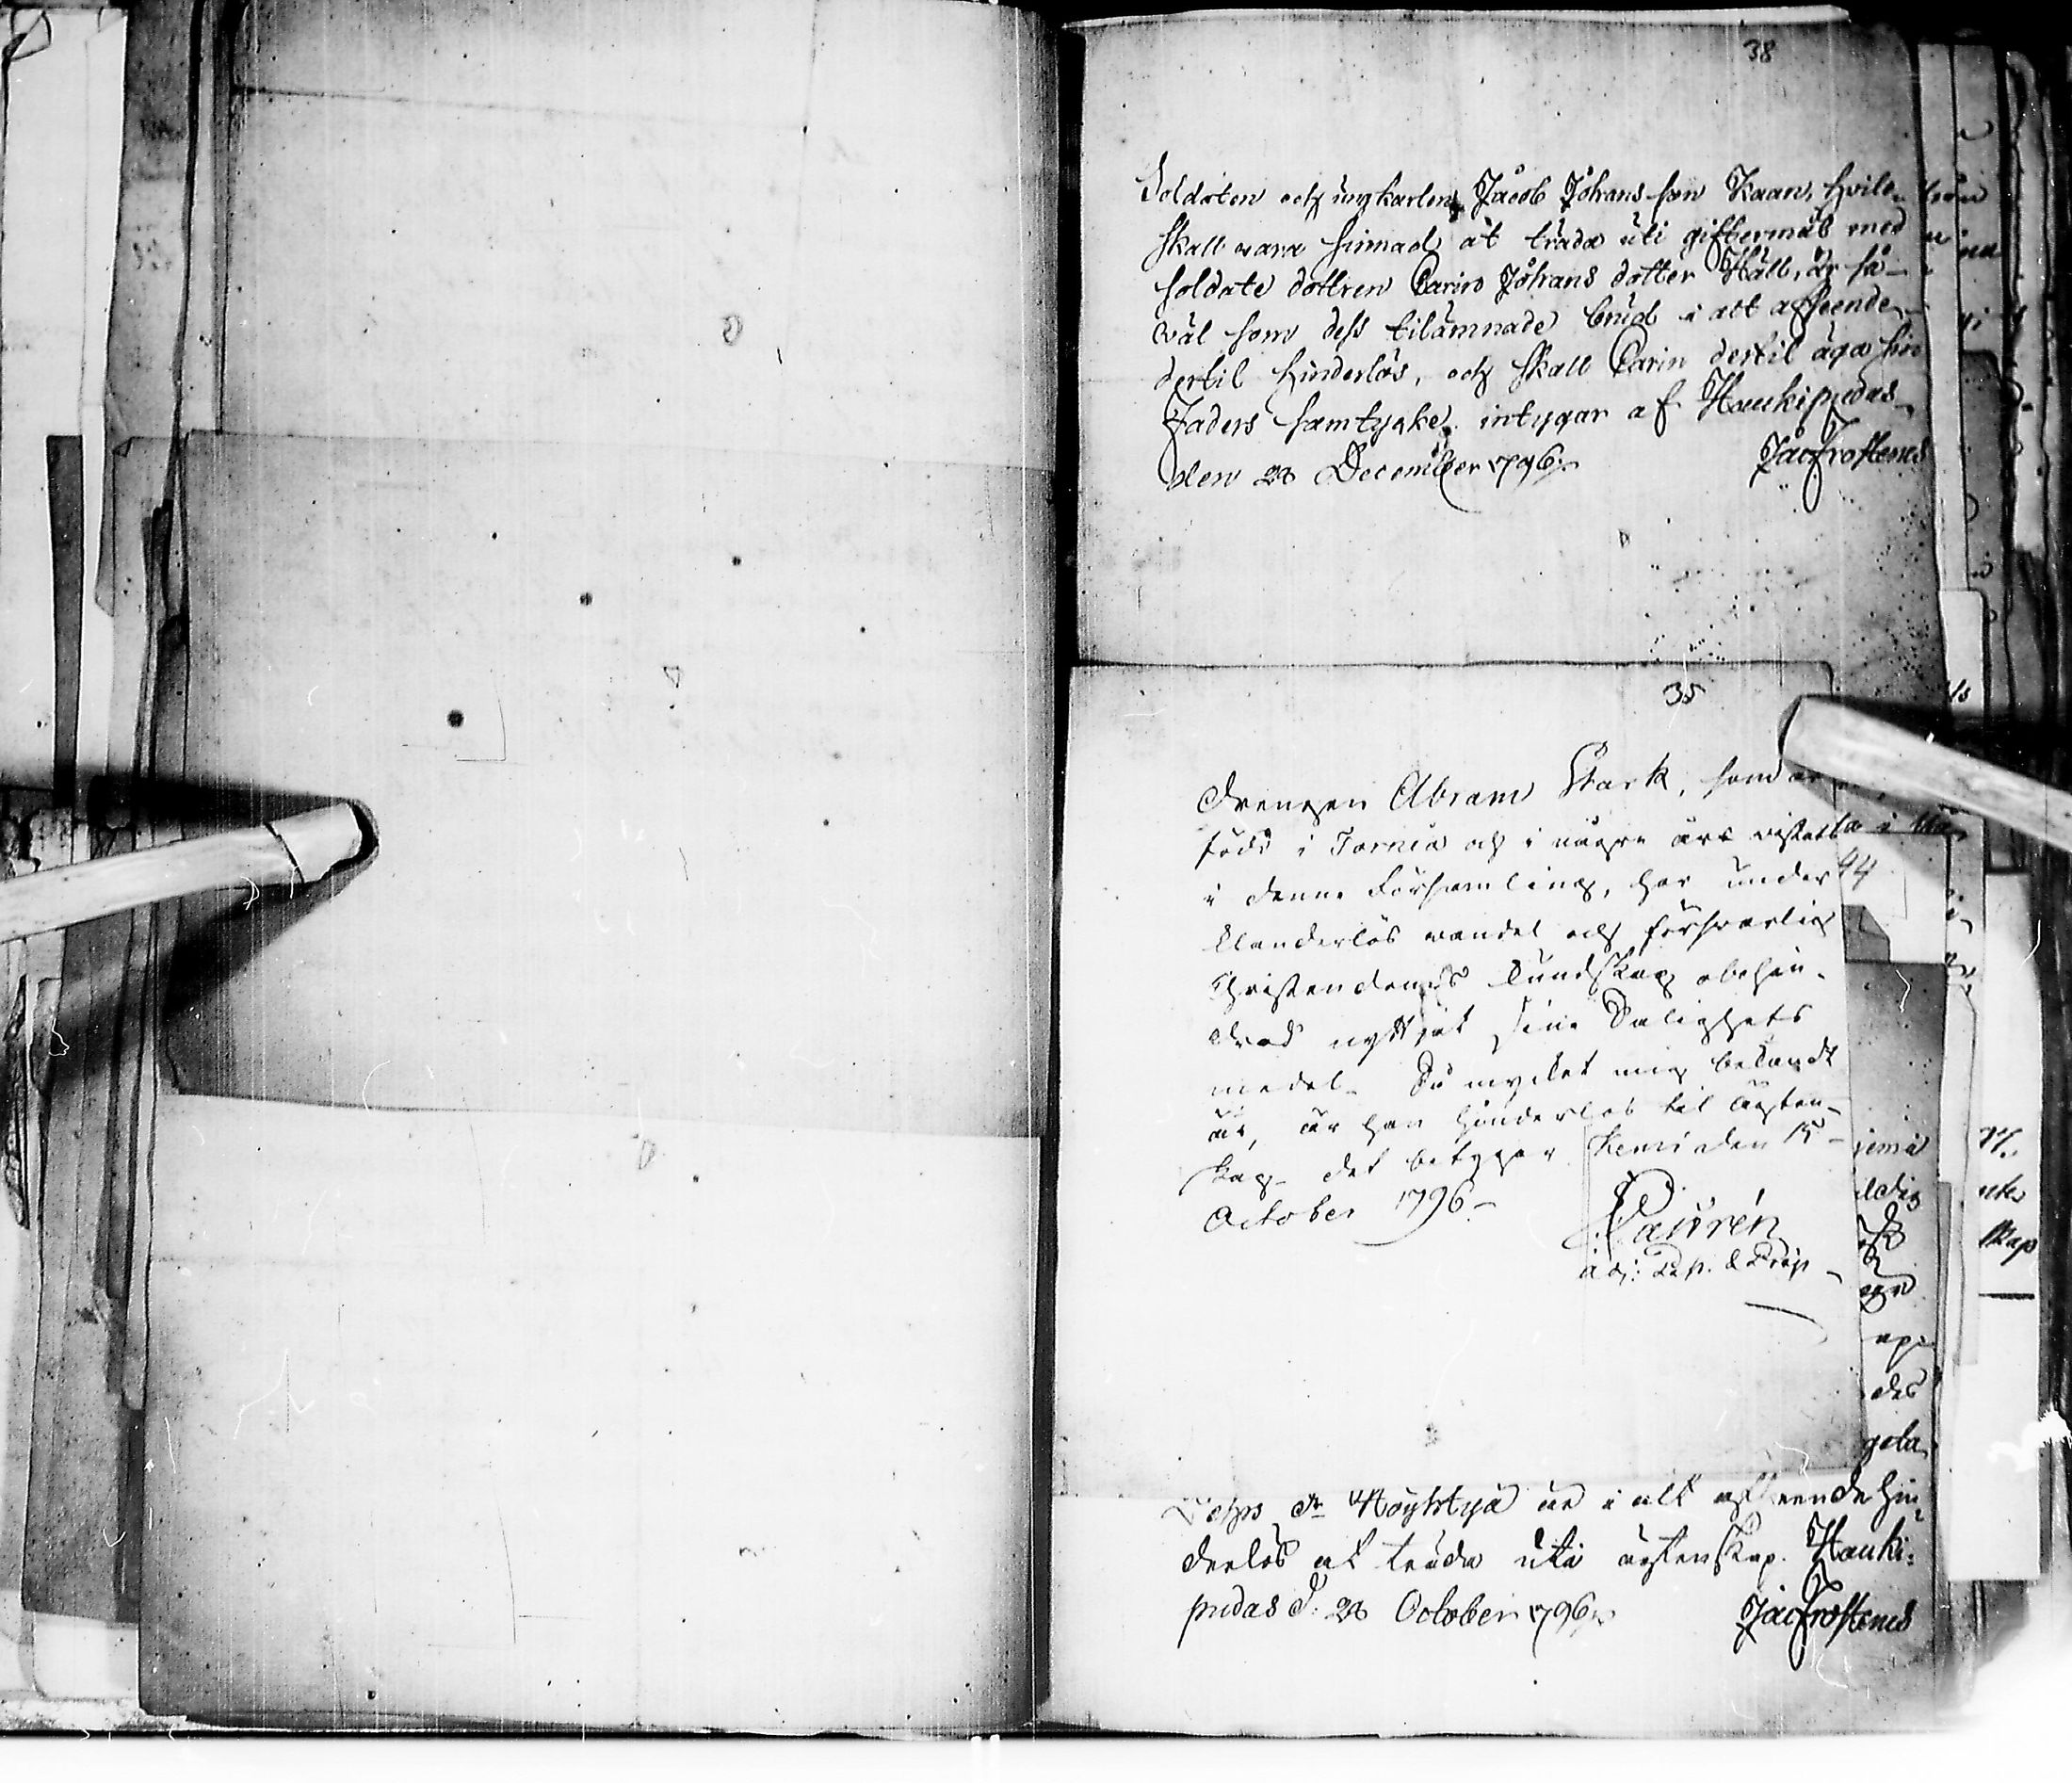 38
Soldaten och ungkarlen Jacob Johans son Kaan, hvilc-
skall vara sinnad at träda uti giftermål med
soldate dottren Carin Johans dotter Häll, är så-
wäl som dess tilämnade brud i alt afseende
dertil hinderlös, och skall Carin dertil äga sin
Faders samtycke, intygar af Haukipudas
den 28 December 1796.
Jac Frosterus
35
Drengen Abram Stark, som är
född i Torneå och i någre års vistats
i denne Församling, har under
Klanderlös vandel och försvarlig
Christendoms Kundskap obehin-
drad nyttjat sine Salighets
medel. Så mycket mig bekandt
är, är han hinderlös til ägten-
skap. det betygar Kemi den 15
October 1796.
44
Lauren
adj:
Höyhtyä är i alt afseende hin-
derlös at träda uti ägtenskap. Hauki-
pudas d. 28 October 1796.
Jac Frosterus